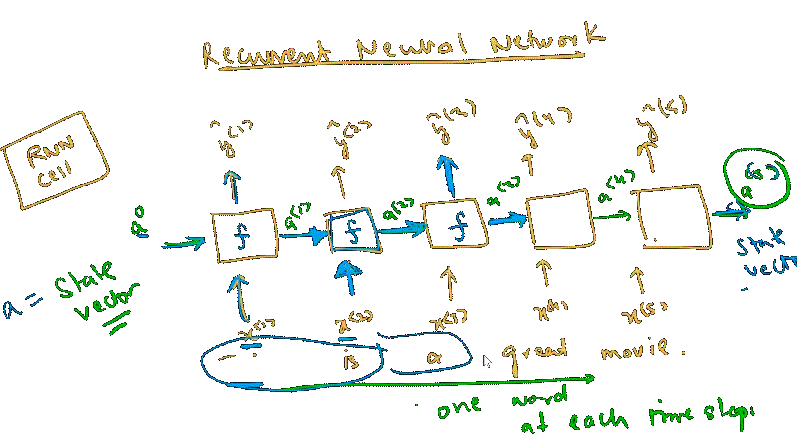 Recurrent Neural Network
RNN
cell
ŷ(1) ŷ(2) ŷ(3) ŷ(4) ŷ(5)
a0 a(1) a(2) a(3) a(4) a(5)
f f f
a = state
vector
state
vector
x(1) x(2) x(3) x(4) x(5)
is a great movie.
one word
at each time step.